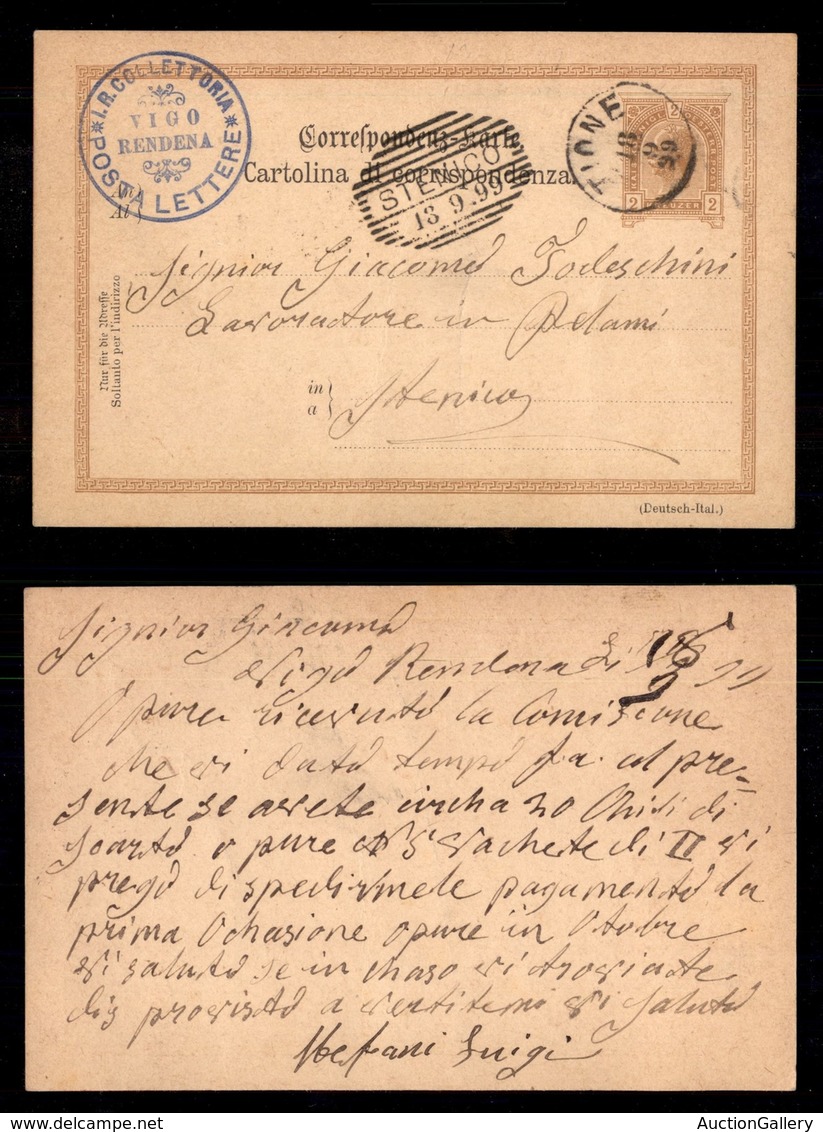 * I.R. COLLETTORIA *
VIGO
RENDENA
POSTA LETTERE
Correspondenz-Karte
Cartolina di corrispondenza.
An
Al
STENICO
13.9.99
TIONE
99
2
2 KREUZER 2
Signior Giacomo Todeschini
Lavoratore in Pelami
in
a
Stenico
Nur für die Adresse
Soltanto per l'indirizzo
(Deutsch-Ital.)
Signior Giacomo
Vigo Rendena li
O pure ricevuto la Comisione
che vi dato tempo fa al pre-
sente se avete circha 20 Chili di
scarto o pure 5 vachete di II vi
prego di spedirmele pagamento la
prima Ochasione opure in Otobre
vi saluto se in chaso vi troviate
dis provisto a vertitemi vi saluto
Stefani Luigi
AuctionGallery
www.delcampe.net